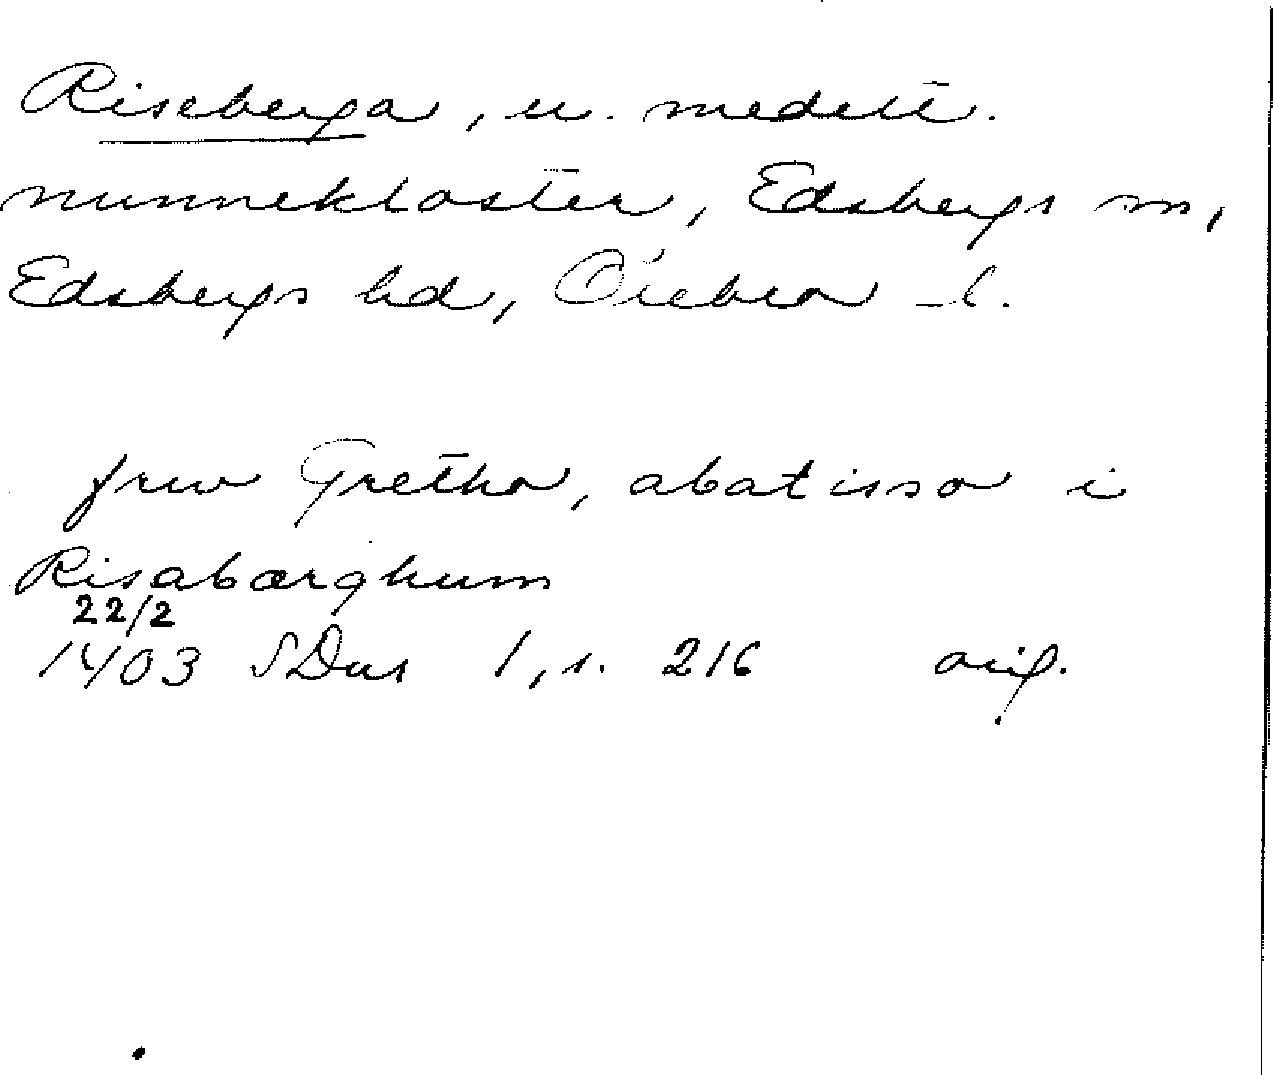 Riseberga, u. medelt.
nunnekloster, Edsbergs sn,
Edsbergs hd, Örebro l.
frw Gretha, abatissa i
Risabærghum
22/2
1403 SDns 1, s. 216 orig.